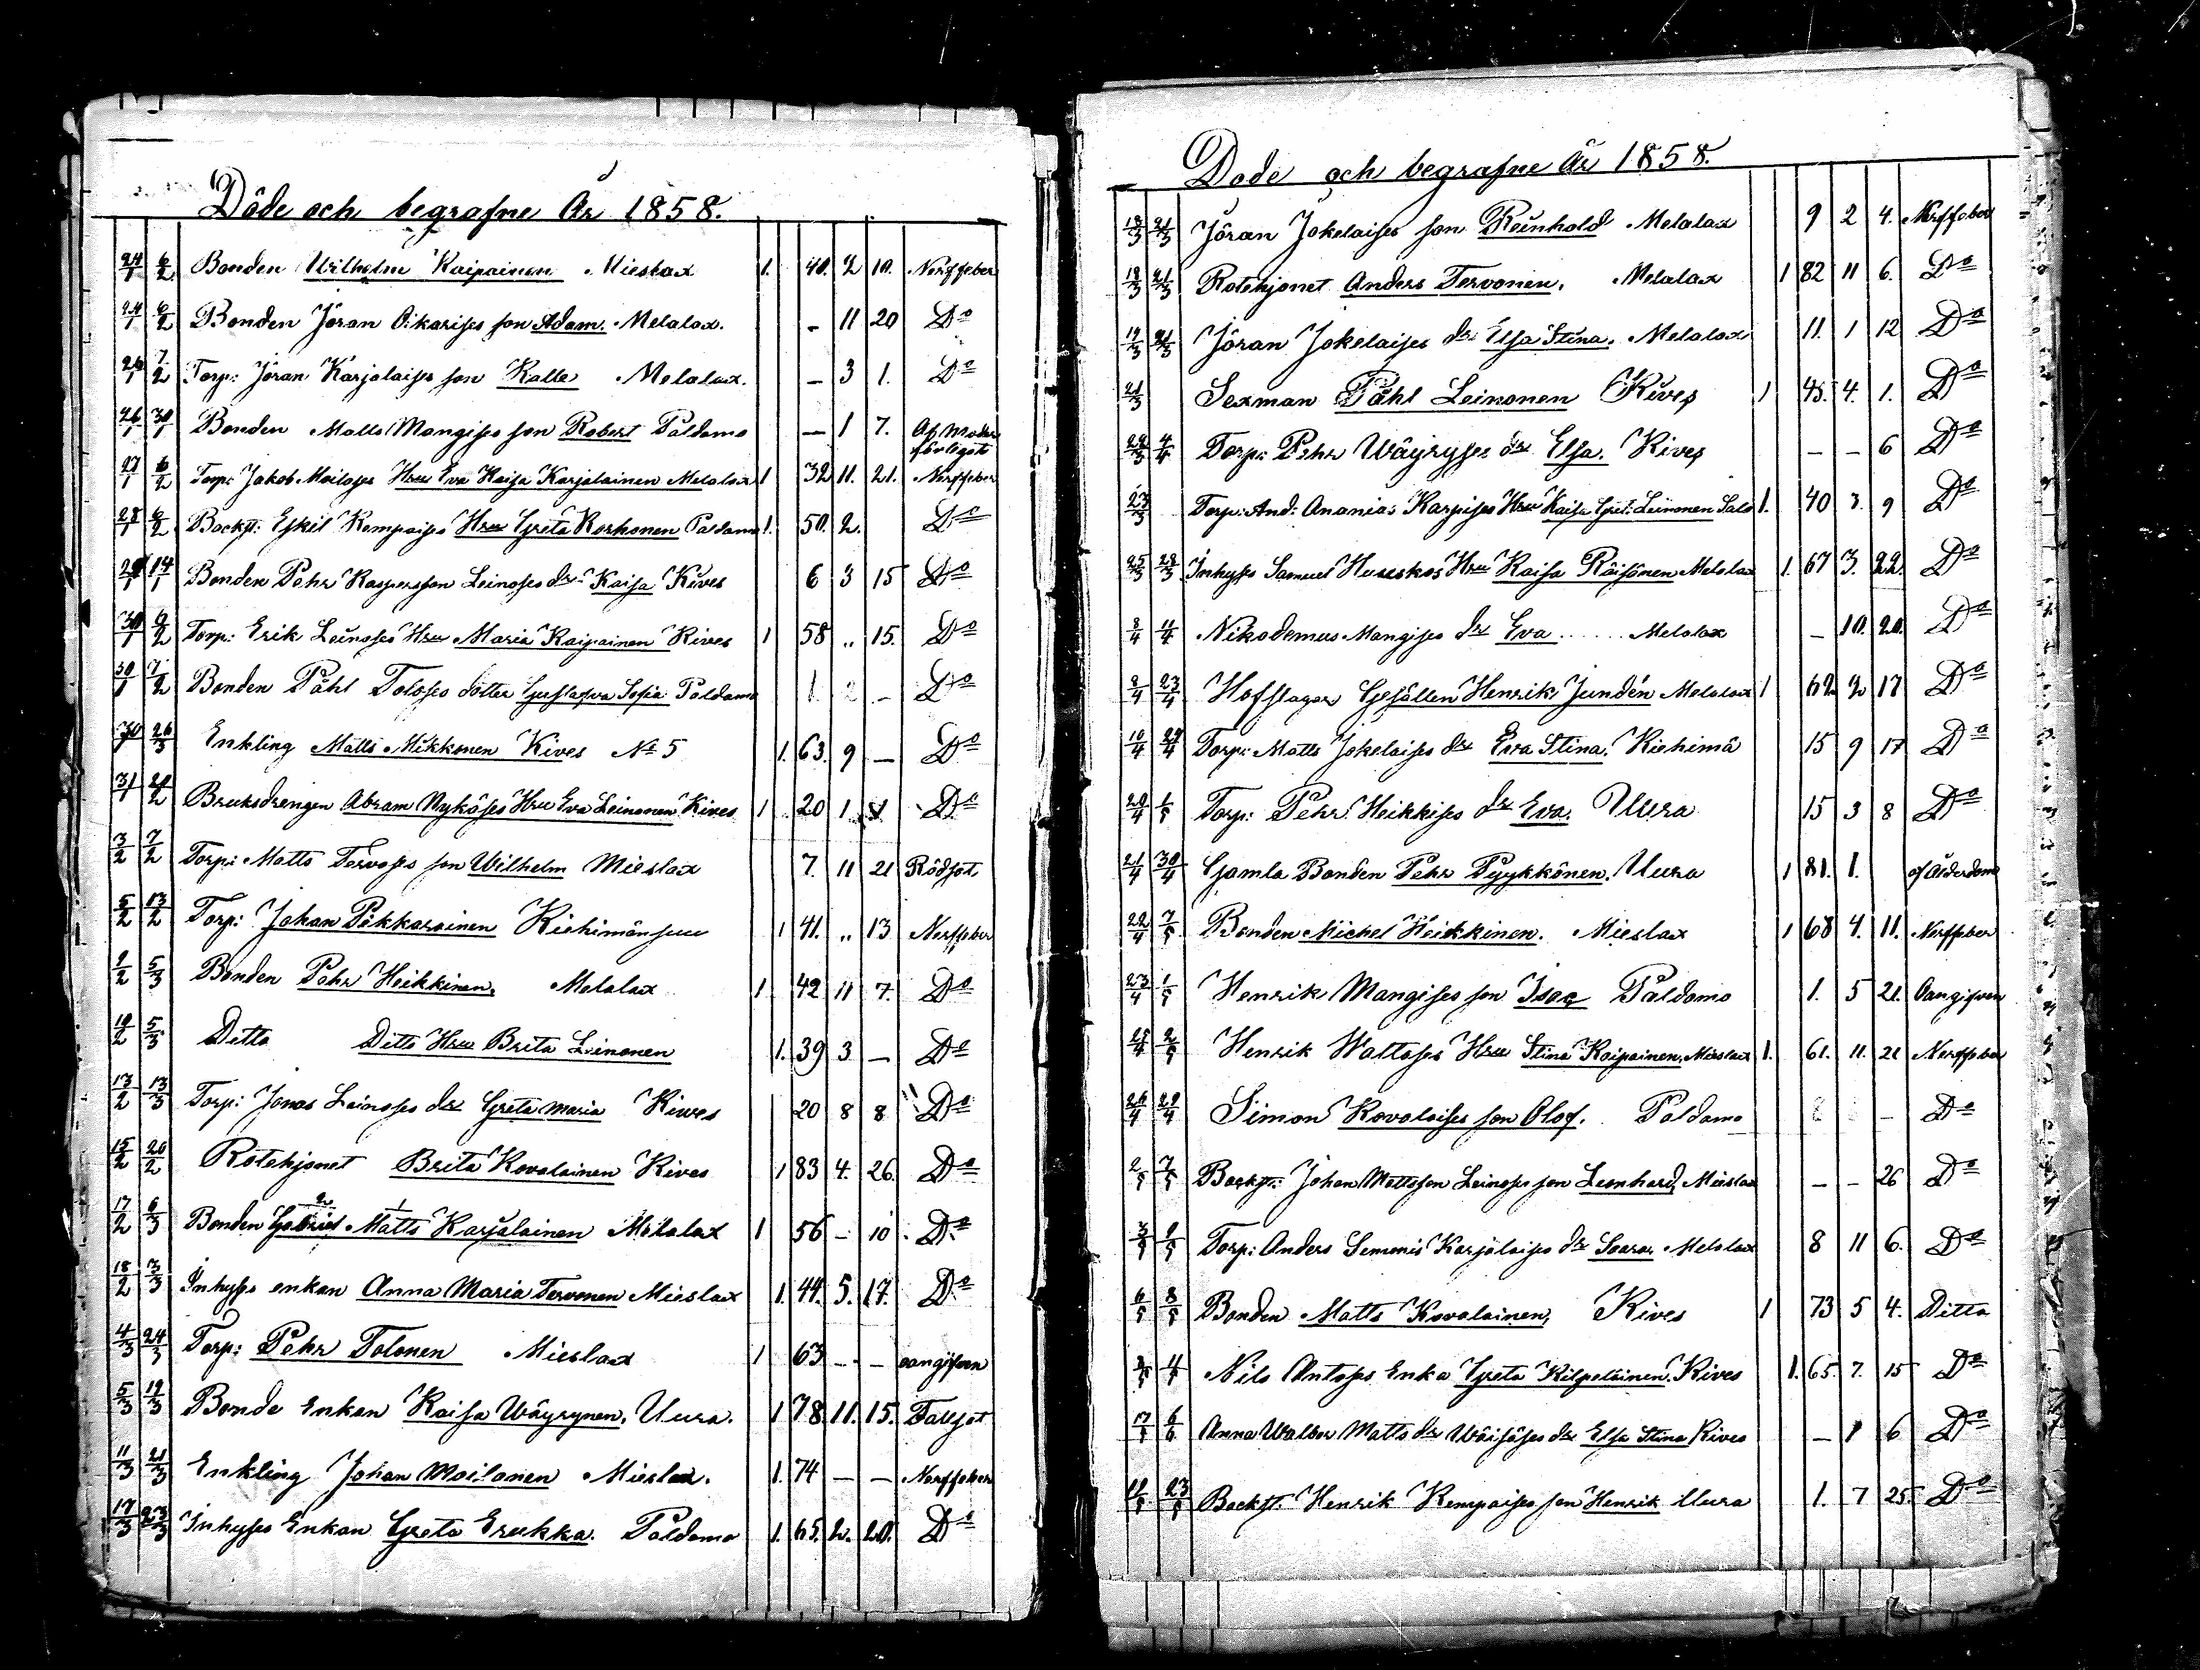 Döde och begrafne År 1858.
24/1 6/2 Bonden Wilhelm Kaipainen Mieslax 1. 40. 2 10. Nerffeber
24/1 6/2 Bonden Jöran Oikarises son Adam. Melalax. – 11 20 Do
26/1 7/2 Torp: Jöran Karjalaises son Kalle Melalax. – 3 1. Do
26/1 30/1 Bonden Matts Mangises son Robert Paldamo – 1 7. Af Moder
förlegat
27/1 6/2 Torp: Jakob Moilases Hru Eva Kaisa Karjalainen Melalax 1 32 11. 21. Nerffeber
28/1 6/2 Backst: Eskil Kempaises Hru Greta Korhonen Paldamo 1. 50. 2. Do
29/1 14/1 Bonden Pehr Kaspersson Leinoses dr Kaisa Kives 6 3 15 Do
30/1 6/2 Torp: Erik Leinoses Hru Maria Kaipainen Kives 1 58 „ 15. Do
30/1 7/2 Bonden Påhl Toloses dotter Gustafva Sofia Paldamo 1 2 – Do
30/1 26/3 Enkling Matts Mikkonen Kives No 5 1. 63. 9 – Do
31/1 21/2 Bruksdrengen Abram Nykäses Hru Eva Leinonen Kives 1 20 1 1 Do
3/2 7/2 Torp: Matts Tervoses son Wilhelm Mieslax 7. 11 21 Rödsot
5/2 13/2 Torp: Johan Pikkarainen Kiehimänsuu 1 41. „ 13 Nerffeber
9/2 5/3 Bonden Pehr Heikkinen. Melalax 1 42 11 7. Do
10/2 5/3 Ditto Ditto Hru Brita Leinonen 1. 39 3 – Do
13/2 13/3 Torp: Jonas Leinoses dr Greta Maria Kives 20 8 8 Do
15/2 20/2 Rotehjonet Brita Kovalainen Kives 1 83 4. 26. Do
17/2 6/3 Bonden Gabriel 2 Matts 1 Karjalainen Melalax 1 56 – 10 Do
18/2 3/3 Inhyses enkan Anna Maria Tervonen Mieslax 1. 44. 5. 17. Do
4/3 24/3 Torp: Pehr Tolonen Mieslax 1 63 – – oangifven
5/3 19/3 Bonde Enkan Kaisa Wäyrynen. Uura. 1 78 11. 15. Fallsot
11/3 21/3 Enkling Johan Moilanen Mieslax. 1. 74 – – Nerffeber
17/3 23/3 Inhyses Enkan Greta Erukka. Paldamo 1. 65. 2. 20. Do
Döde och begrafne År 1858.
18/3 21/3 Jöran Jokelaises son Reinhold Melalax 9 2 4. Nerffeber
18/3 21/3 Rotehjonet Anders Tervonen. Melalax 1 82 11 6. Do
19/3 21/3 Jöran Jokelaises dr Elsa Stina. Melalax 11. 1 12 Do
21/3 Sexman Påhl Leinonen Kives 1 45. 4. 1. Do
22/3 4/4 Torp: Pehr Wäyryses dr Elsa. Kives – – 6 Do
23/3 Torp: And: Ananias Karpises Hru Kaisa Gret: Leinonen Salo 1. 40 3. 9 Do
25/3 28/3 Inhyses Samuel Huuskos Hru Kaisa Räisänen Melalax 1. 67 3. 22. Do
8/4 11/4 Nikodemus Mangises dr Eva ...... Melalax – 10. 20. Do
8/4 23/4 Hofslagar Gesällen Henrik Jundén Melalax 1 62 2 17 Do
10/4 29/4 Torp: Matts Jokelaises dr Eva Stina. Kiehimä 15 9 17 Do
20/4 1/5 Torp: Pehr Heikkises dr Eva. Uura 15 3 8 Do
21/4 30/4 Gamla Bonden Pehr Pyykkönen. Uura 1 81. 1. af Ålderdom
22/4 7/5 Bonden Michel Heikkinen. Mieslax 1 68 4. 11. Nerffeber
23/4 1/5 Henrik Mangises son Isac Paldamo 1. 5 21. Oangifven
25/4 2/5 Henrik Wattoses Hru Stina Kaipainen, Mieslax 1. 61. 11. 21 Nerffeber
26/4 29/4 Simon Kovalaises son Olof. Paldamo – Do
2/5 7/5 Backst: Johan Mattsson Leinoses son Leonhard Mieslax – – 26 Do
3/5 9/5 Torp: Anders Semenis Karjalaises dr Saara Melalax 8 11 6. Do
6/5 8/5 Bonden Matts Kovalainen, Kives 1 73 5 4. Ditto
Nils Antoses Enka Greta Kilpeläinen. Kives 1. 65. 7. 15 Do
17/5 6/6 Anna Walbor Matts dr Wäisäses dr Elsa Stina Kives – 1 6 Do
23/5 Backst. Henrik Kempaises son Henrik Uura 1. 7 25. Do